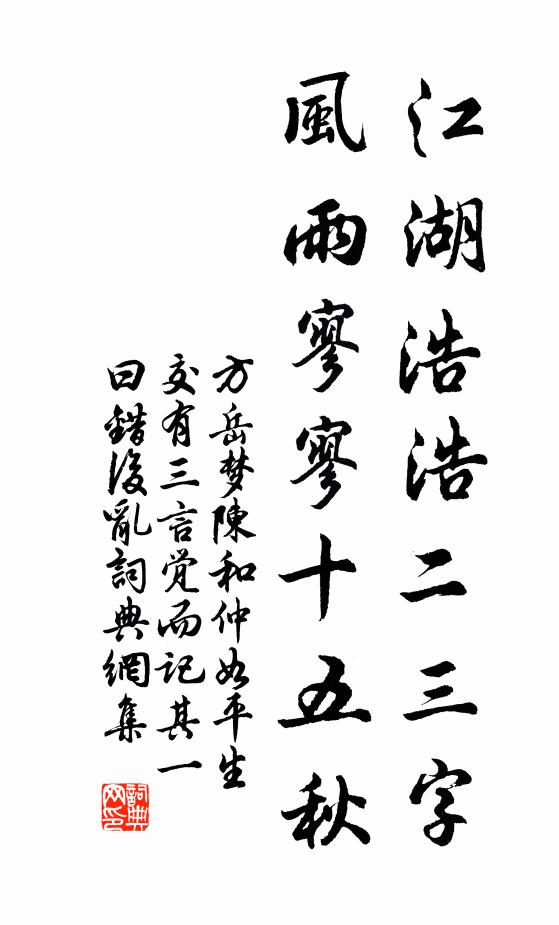 江湖浩浩二三字
風雨寥寥十五秋
方岳梦陳和仲如平生
交有三言覚而記其一
曰錯後亂詞典網集
詞典网印